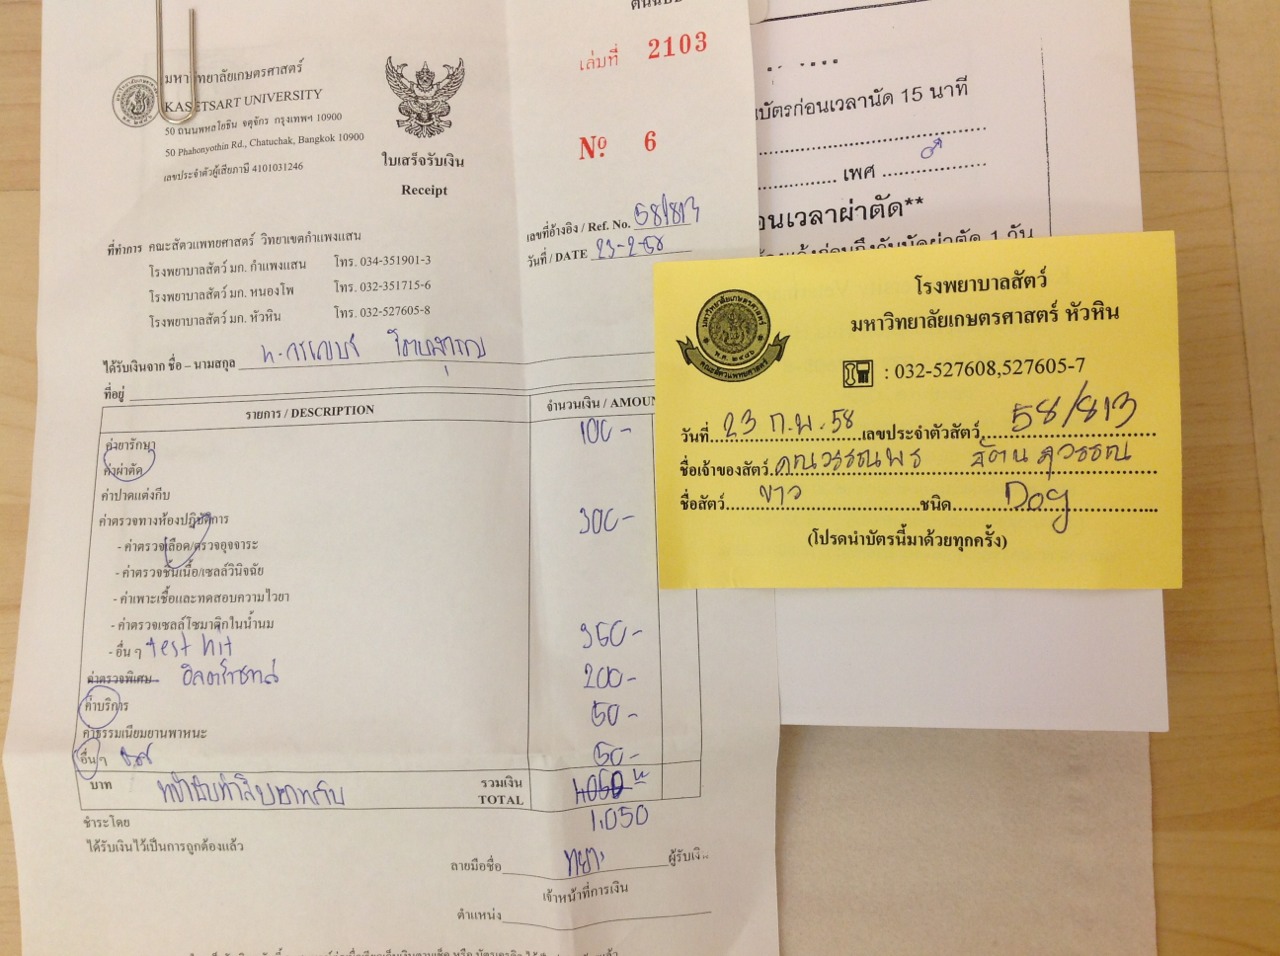 เล่มที่ 2103
Nº 6
มหาวิทยาลัยเกษตรศาสตร์
KASETSART UNIVERSITY
50 ถนนพหลโยธิน จตุจักร กรุงเทพฯ 10900
50 Phahonyothin Rd., Chatuchak, Bangkok 10900
เลขประจำตัวผู้เสียภาษี 4101031246
ใบเสร็จรับเงิน
Receipt
เลขที่อ้างอิง / Ref. No. 58/813
วันที่ / DATE 23-2-58
ที่ทำการ คณะสัตวแพทยศาสตร์ วิทยาเขตกำแพงแสน
โรงพยาบาลสัตว์ มก. กำแพงแสน โทร. 034-351901-3
โรงพยาบาลสัตว์ มก. หนองโพ โทร. 032-351715-6
โรงพยาบาลสัตว์ มก. หัวหิน โทร. 032-527605-8
ได้รับเงินจาก ชื่อ – นามสกุล
ที่อยู่
รายการ / DESCRIPTION จำนวนเงิน / AMOUN
ค่ายารักษา 100-
ค่าผ่าตัด
ค่าปาดแต่งกีบ
ค่าตรวจทางห้องปฏิบัติการ 300-
- ค่าตรวจเลือด/ตรวจอุจจาระ
- ค่าตรวจชิ้นเนื้อ/เซลล์วินิจฉัย
- ค่าเพาะเชื้อและทดสอบความไวยา
- ค่าตรวจเซลล์โซมาติกในน้ำนม
- อื่น ๆ test kit 350-
ค่าตรวจพิเศษ 200-
ค่าบริการ 50-
ค่าธรรมเนียมยานพาหนะ
อื่น ๆ 50-
บาท รวมเงิน
TOTAL
1,050
ชำระโดย
ได้รับเงินไว้เป็นการถูกต้องแล้ว
ลายมือชื่อ ผู้รับเงิน
เจ้าหน้าที่การเงิน
ตำแหน่ง
บัตรก่อนเวลานัด 15 นาที
เพศ ♂
อนเวลาผ่าตัด**
โรงพยาบาลสัตว์
มหาวิทยาลัยเกษตรศาสตร์ หัวหิน
: 032-527608,527605-7
วันที่ 23 ก.พ. 58 เลขประจำตัวสัตว์ 58/813
ชื่อเจ้าของสัตว์ คุณวรรณพร
ชื่อสัตว์ ขาว ชนิด Dog
(โปรดนำบัตรนี้มาด้วยทุกครั้ง)